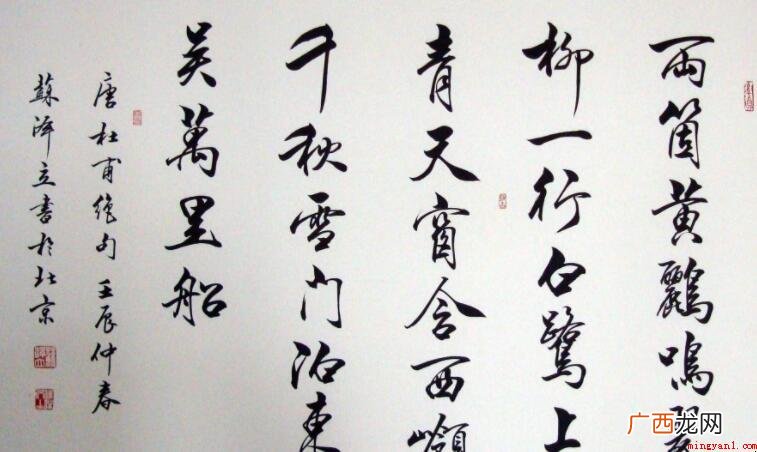 兩箇黃鸝鳴翠
柳一行白鷺上
青天窗含西嶺
千秋雪門泊東
吳萬里船
唐杜甫絕句 壬辰仲春
蘇澤立書於北京
广西龙网
mingyan1.com